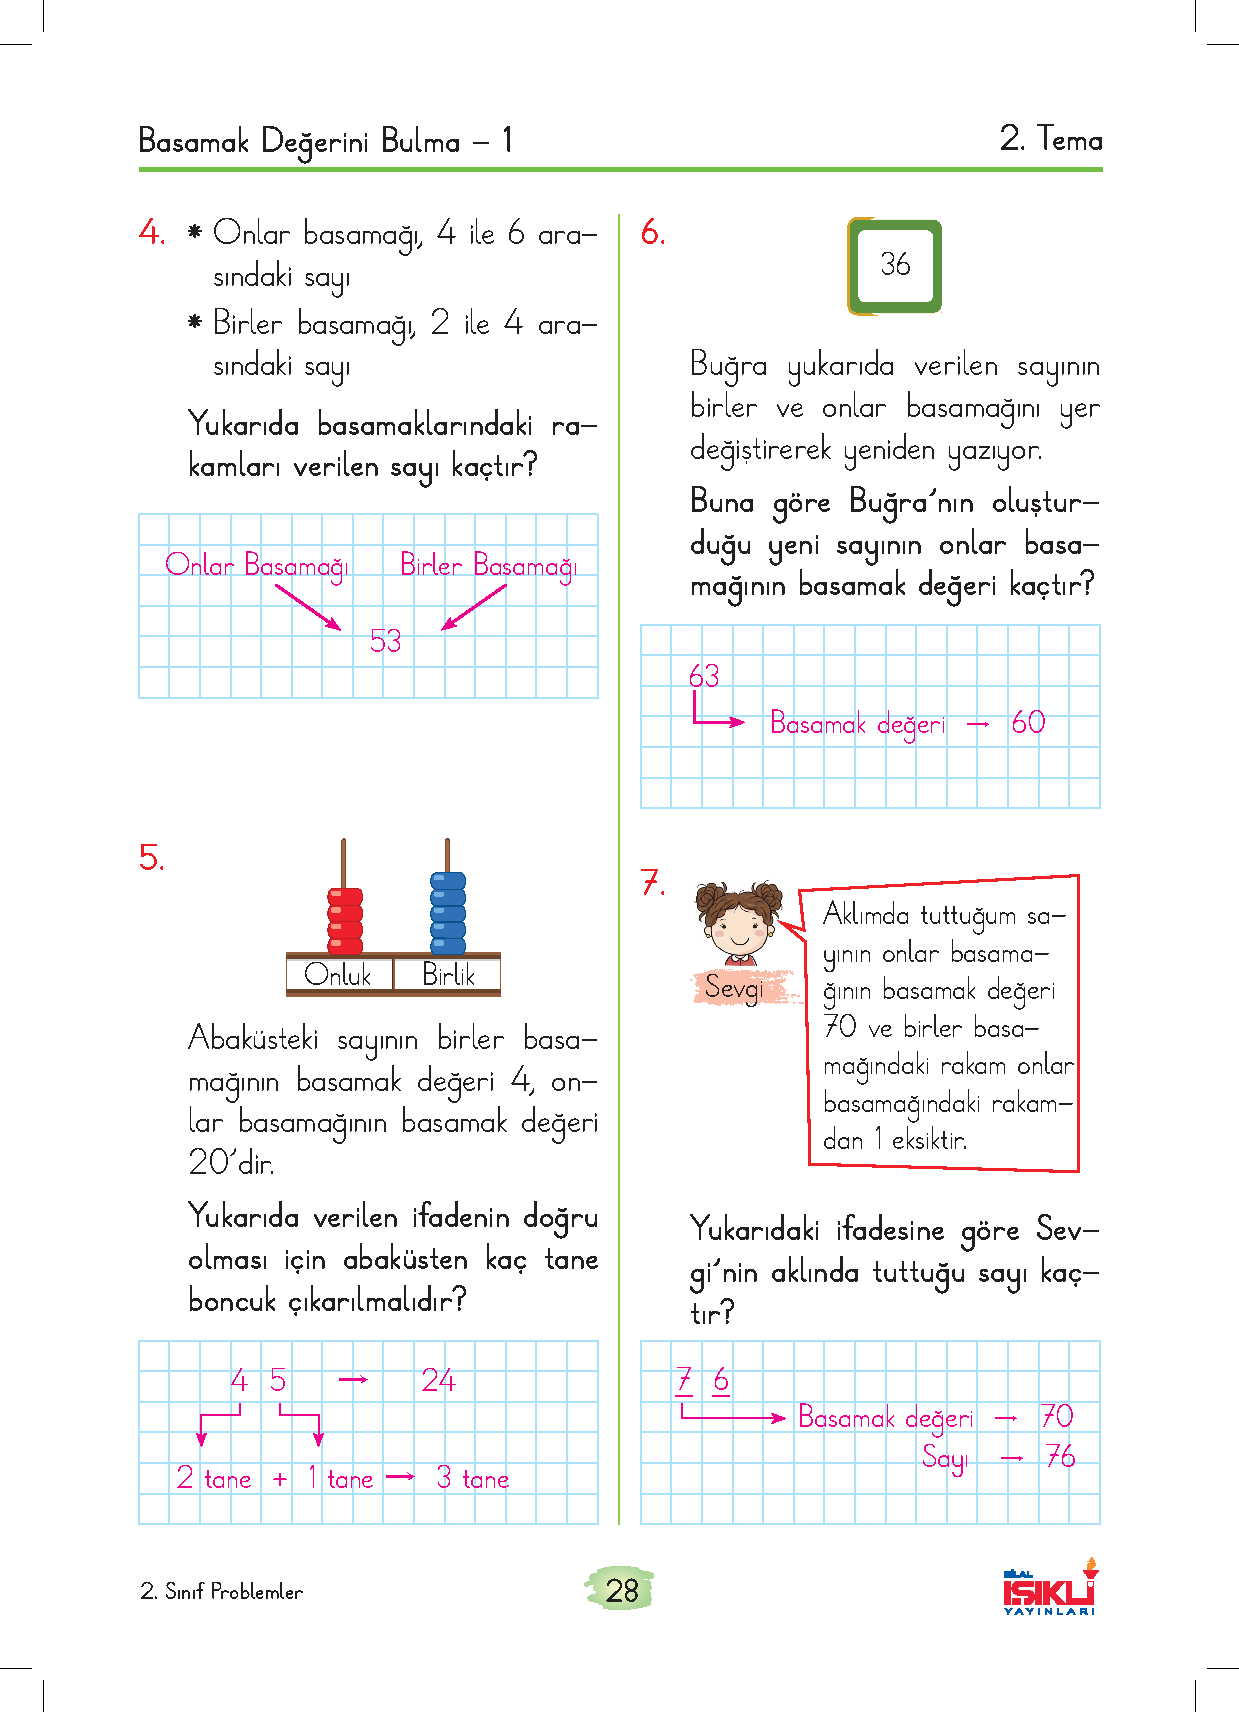 Basamak Değerini Bulma – 1
2. Tema
4. * Onlar basamağı, 4 ile 6 ara–
sındaki sayı
* Birler basamağı, 2 ile 4 ara–
sındaki sayı
Yukarıda basamaklarındaki ra–
kamları verilen sayı kaçtır?
Onlar Basamağı Birler Basamağı
53
5.
Onluk Birlik
Abaküsteki sayının birler basa–
mağının basamak değeri 4, on–
lar basamağının basamak değeri
20'dir.
Yukarıda verilen ifadenin doğru
olması için abaküsten kaç tane
boncuk çıkarılmalıdır?
4 5 → 24
2 tane + 1 tane → 3 tane
6.
36
Buğra yukarıda verilen sayının
birler ve onlar basamağını yer
değiştirerek yeniden yazıyor.
Buna göre Buğra'nın oluştur–
duğu yeni sayının onlar basa–
mağının basamak değeri kaçtır?
63
Basamak değeri → 60
7.
Sevgi
Aklımda tuttuğum sa–
yının onlar basama–
ğının basamak değeri
70 ve birler basa–
mağındaki rakam onlar
basamağındaki rakam–
dan 1 eksiktir.
Yukarıdaki ifadesine göre Sev–
gi'nin aklında tuttuğu sayı kaç–
tır?
7 6
Basamak değeri → 70
Sayı → 76
2. Sınıf Problemler
28
BİLAL
IŞIKLI
YAYINLARI